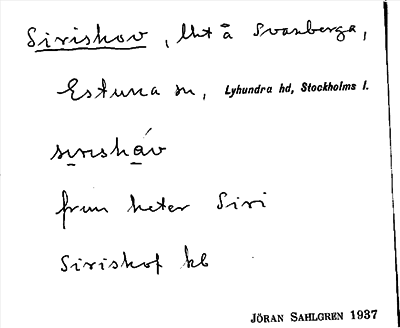 Siriskov, lht å Svanberga,
Estuna sn, Lyhundra hd, Stockholms l.
siriskáv
frun heter Siri
Siriskof kb
JÖRAN SAHLGREN 1937